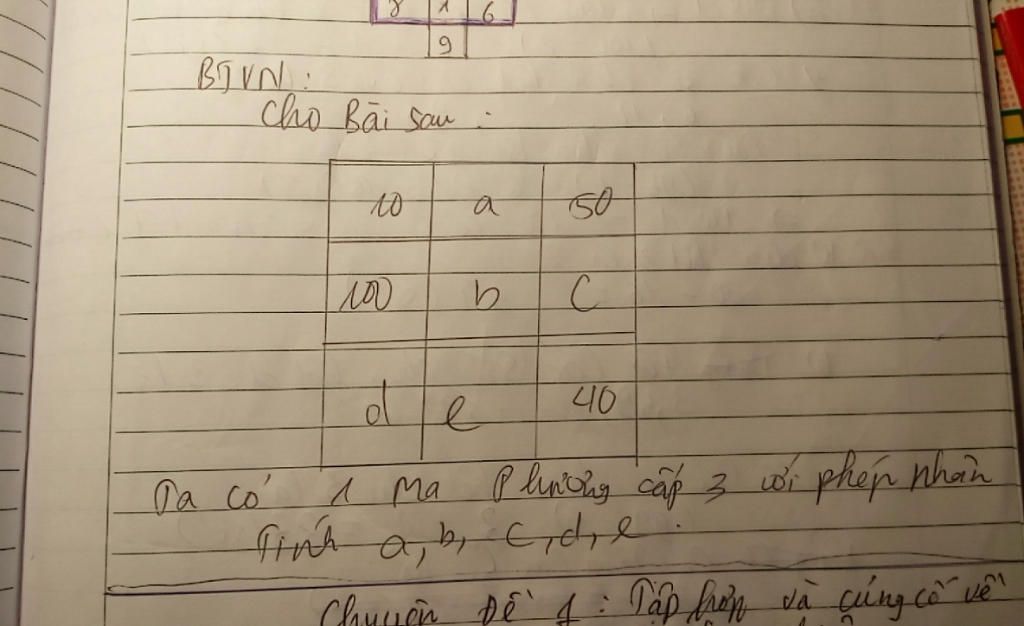 8 1 6
9
BTVN:
Cho Bài sau:
10 a 50
100 b c
d e 40
Ta có 1 Ma Phương cấp 3 với phép nhân
Tính a, b, c, d, e.
Chuyên Đề 1: Tập hợp và củng cố về